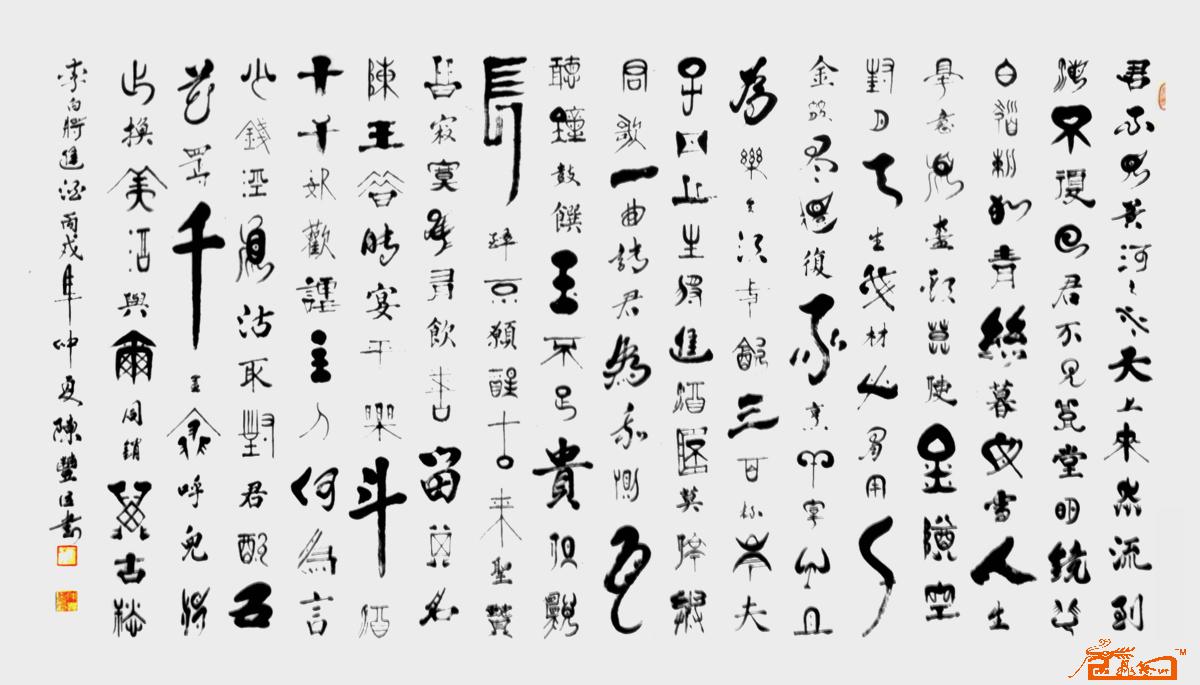 君不見黃河之水天上來奔流到
海不復回君不見高堂明鏡悲
白髮朝如青絲暮成雪人生
得意須盡歡莫使金樽空
對月天生我材必有用千
金散盡還復來烹羊宰牛且
為樂會須一飲三百杯岑夫
子丹丘生將進酒杯莫停與
君歌一曲請君為我側耳
聽鐘鼓饌玉不足貴但願
長醉不願醒古來聖賢
皆寂寞惟有飲者留其名
陳王昔時宴平樂斗酒
十千恣歡謔主人何為言
少錢徑須沽取對君酌五
花馬千金裘呼兒將
出換美酒與爾同銷萬古愁
李白將進酒丙戌年仲夏陳豐書